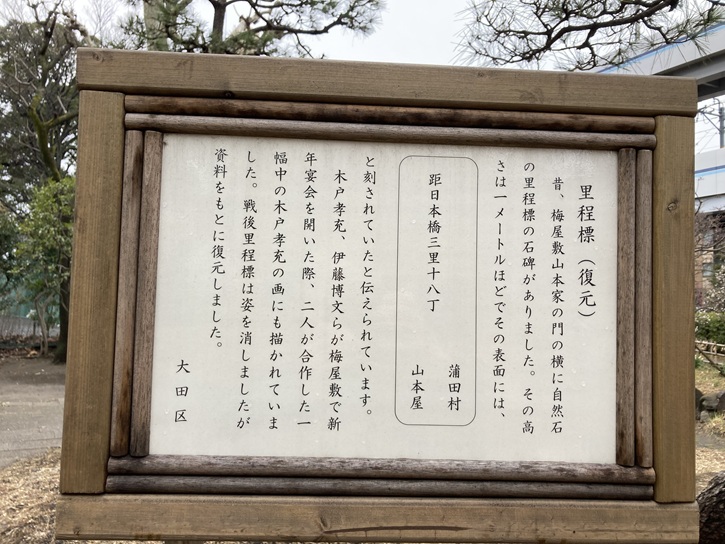 里程標（復元）
昔、梅屋敷山本家の門の横に自然石
の里程標の石碑がありました。その高
さは一メートルほどでその表面には、
蒲田村
距日本橋三里十八丁
山本屋
と刻されていたと伝えられています。
木戸孝充、伊藤博文らが梅屋敷で新
年宴会を開いた際、二人が合作した一
幅中の木戸孝充の画にも描かれていま
した。戦後里程標は姿を消しましたが
資料をもとに復元しました。
大田区